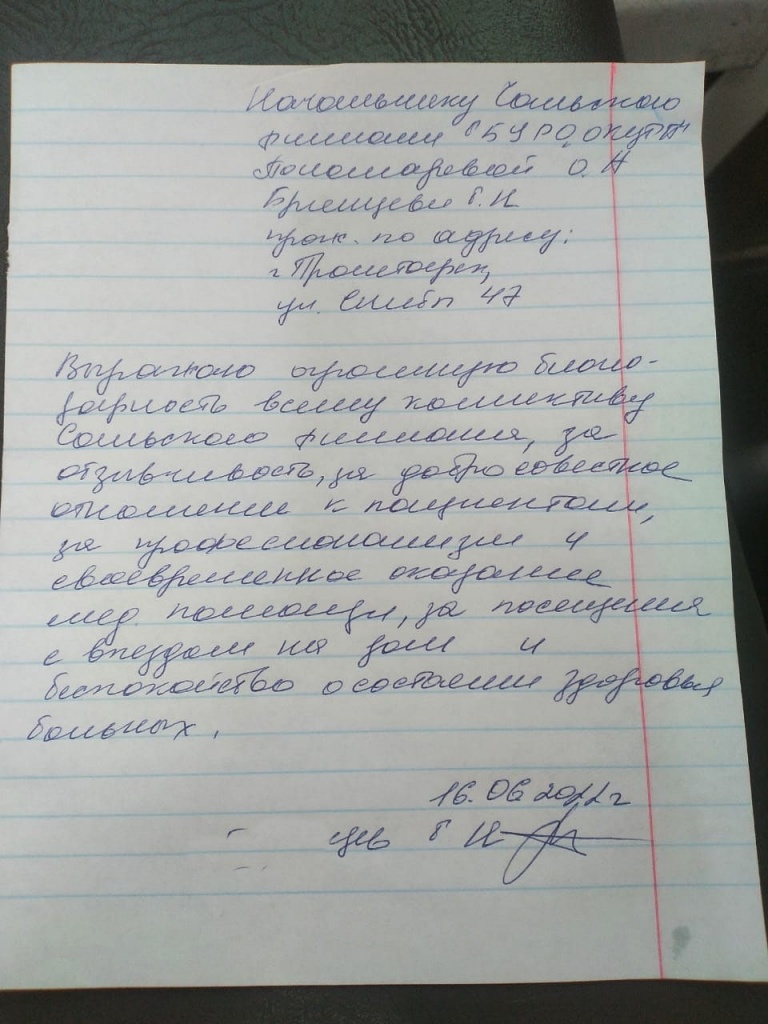 Начальнику Сальского
филиала "БУ РО "ОКЦФП"
Пономаревой О.Н
Г.Н
прож. по адресу:
г Пролетарск,
ул. 47
Выражаю огромную благо-
дарность всему коллективу
Сальского филиала, за
отзывчивость, за добросовестное
отношение к пациентам,
за професионализм и
своевременное оказание
мед помощи, за посещения
с выездом на дом и
беспокойство о состоянии здоровья
больных.
16.06 2022 г
цев Г Н